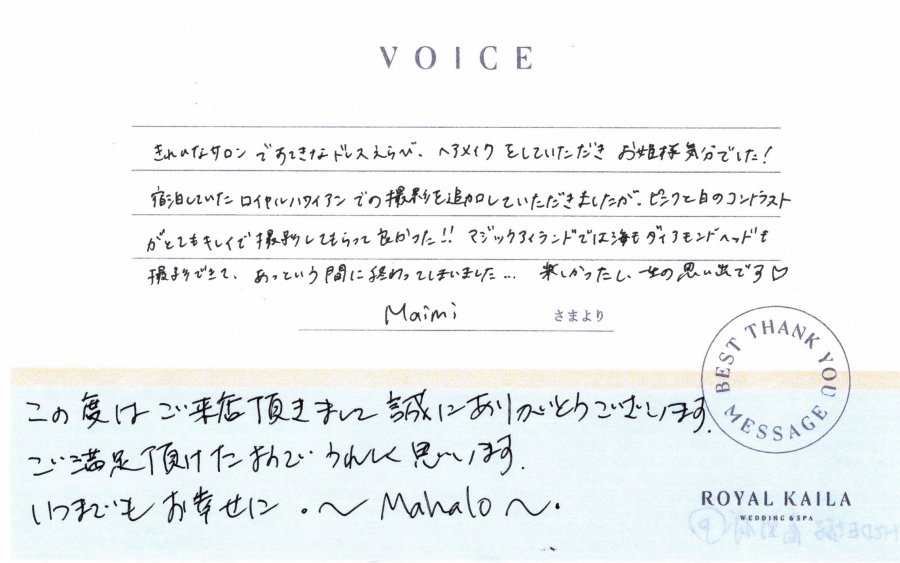 VOICE
きれいなサロンですてきなドレスえらび、ヘアメイクをしていただきお姫様気分でした!
宿泊していたロイヤルハワイアンでの撮影を追加していただきましたが、ピンクと白のコントラスト
がとてもキレイで撮影してもらって良かった!! マジックアイランドでは海もダイアモンドヘッドも
撮影できて、あっという間に終わってしまいました... 楽しかったし、一生の思い出です♡
Maimi さまより
BEST THANK YOU MESSAGE
この度はご来店頂きまして誠にありがとうございます。
ご満足頂けたようでうれしく思います。
いつまでもお幸せに。〜Mahalo〜。
ROYAL KAILA
WEDDING & SPA